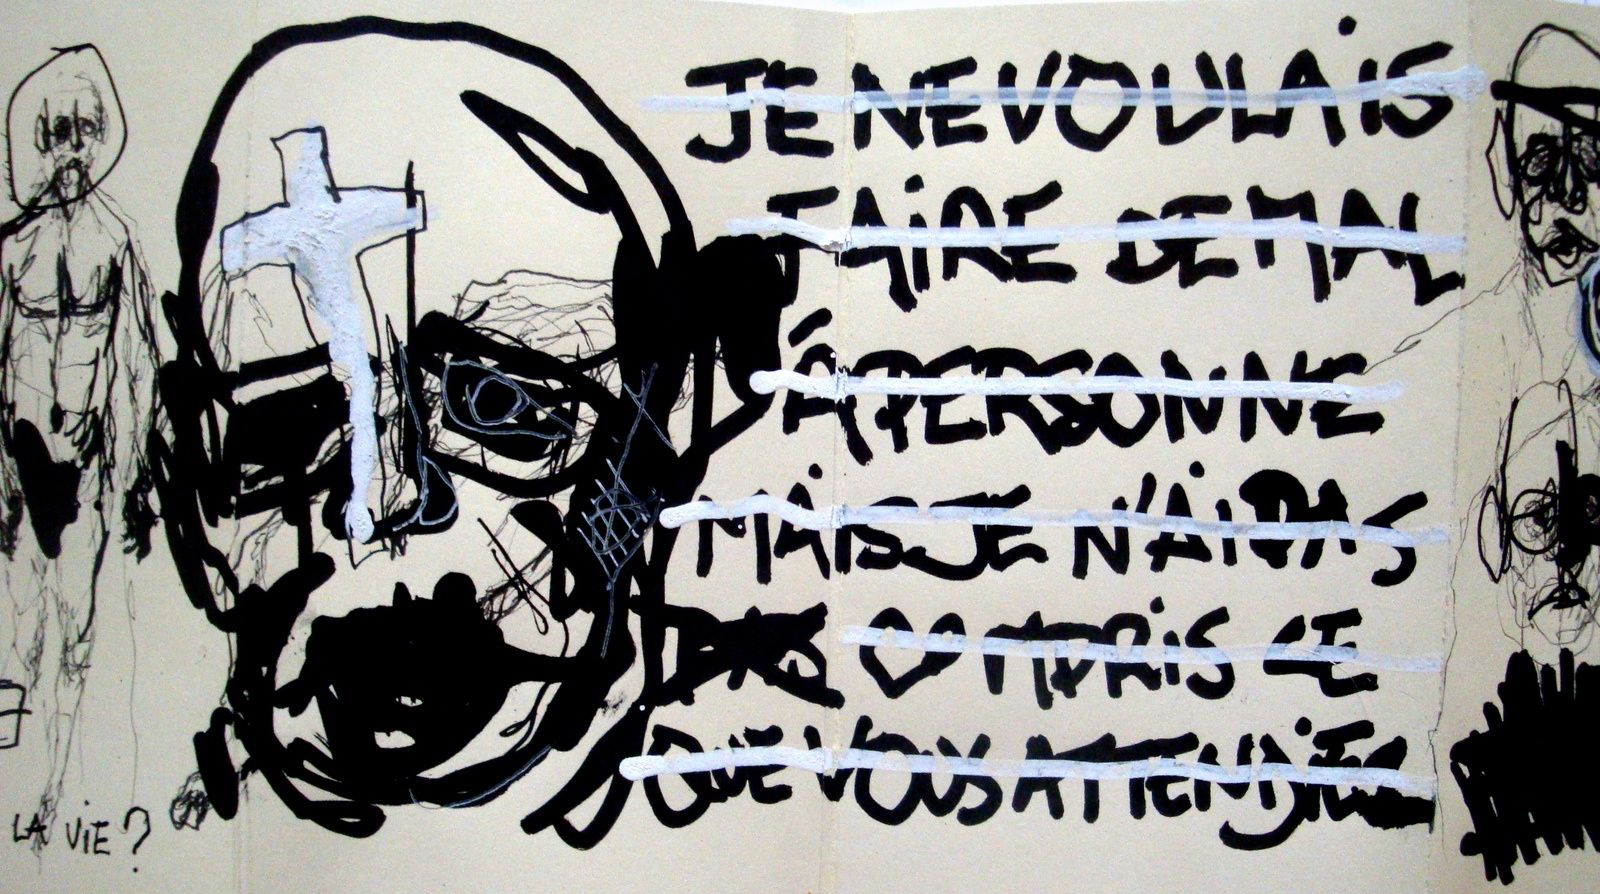 JE NE VOULAIS
FAiRE DE MAL
À PERSONNE
MAiS JE N'Ai PAS
PAS COMPRiS CE
QUE VOUS ATTENDiEZ
LA ViE?